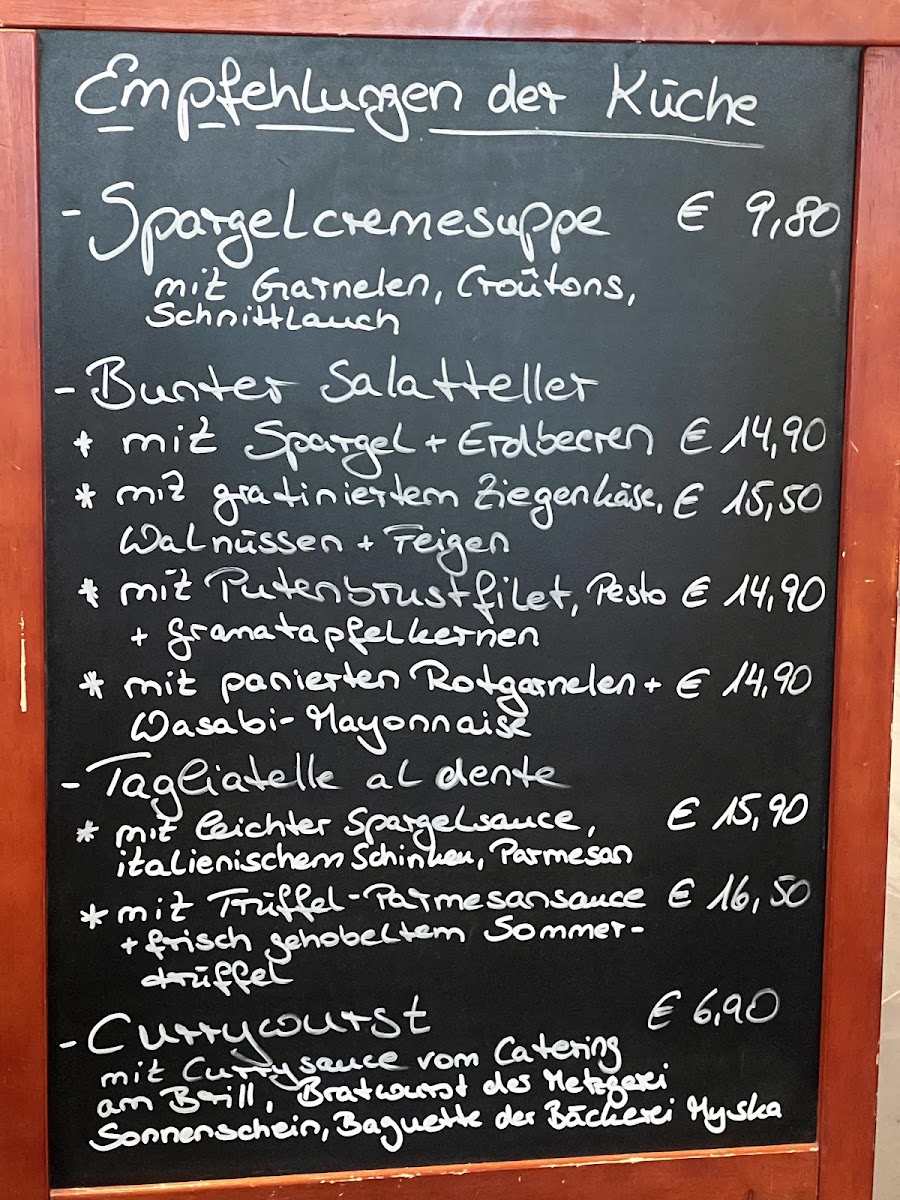 Empfehlungen der Küche
- Spargelcremesuppe € 9,80
mit Garnelen, Croûtons,
Schnittlauch
- Bunter Salatteller
* mit Spargel + Erdbeeren € 14,90
* mit gratiniertem Ziegenkäse, € 15,50
Walnüssen + Feigen
* mit Putenbrustfilet, Pesto € 14,90
+ Granatapfelkernen
* mit panierten Rotgarnelen + € 14,90
Wasabi-Mayonnaise
- Tagliatelle al dente
* mit leichter Spargelsauce, € 15,90
italienischem Schinken, Parmesan
* mit Trüffel-Parmesansauce € 16,50
+ frisch gehobeltem Sommer-
trüffel
- Currywurst € 6,90
mit Currysauce vom Catering
am Brill, Bratwurst des Metzgerei
Sonnenschein, Baguette der Bäckerei Myska